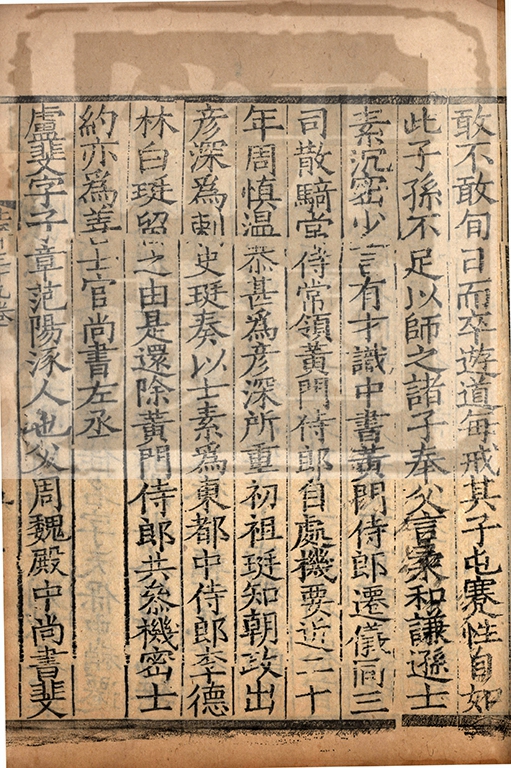 敢不敢旬日而卒遊道每戒其子屯蹇性自如
此子孫不足以師之諸子奉父言柔和謙遜士
素沉密少言有才識中書黃門侍郎遷儀同三
司散騎常侍常領黃門侍郎自處機要近二十
年周慎溫恭甚為彥深所重初祖珽知朝政出
彥深為刺史珽奏以士素為東都中侍郎李德
林白珽留之由是還除黃門侍郎共參機密士
約亦為善士官尚書左丞
盧斐字子章范陽涿人也父周魏殿中尚書斐